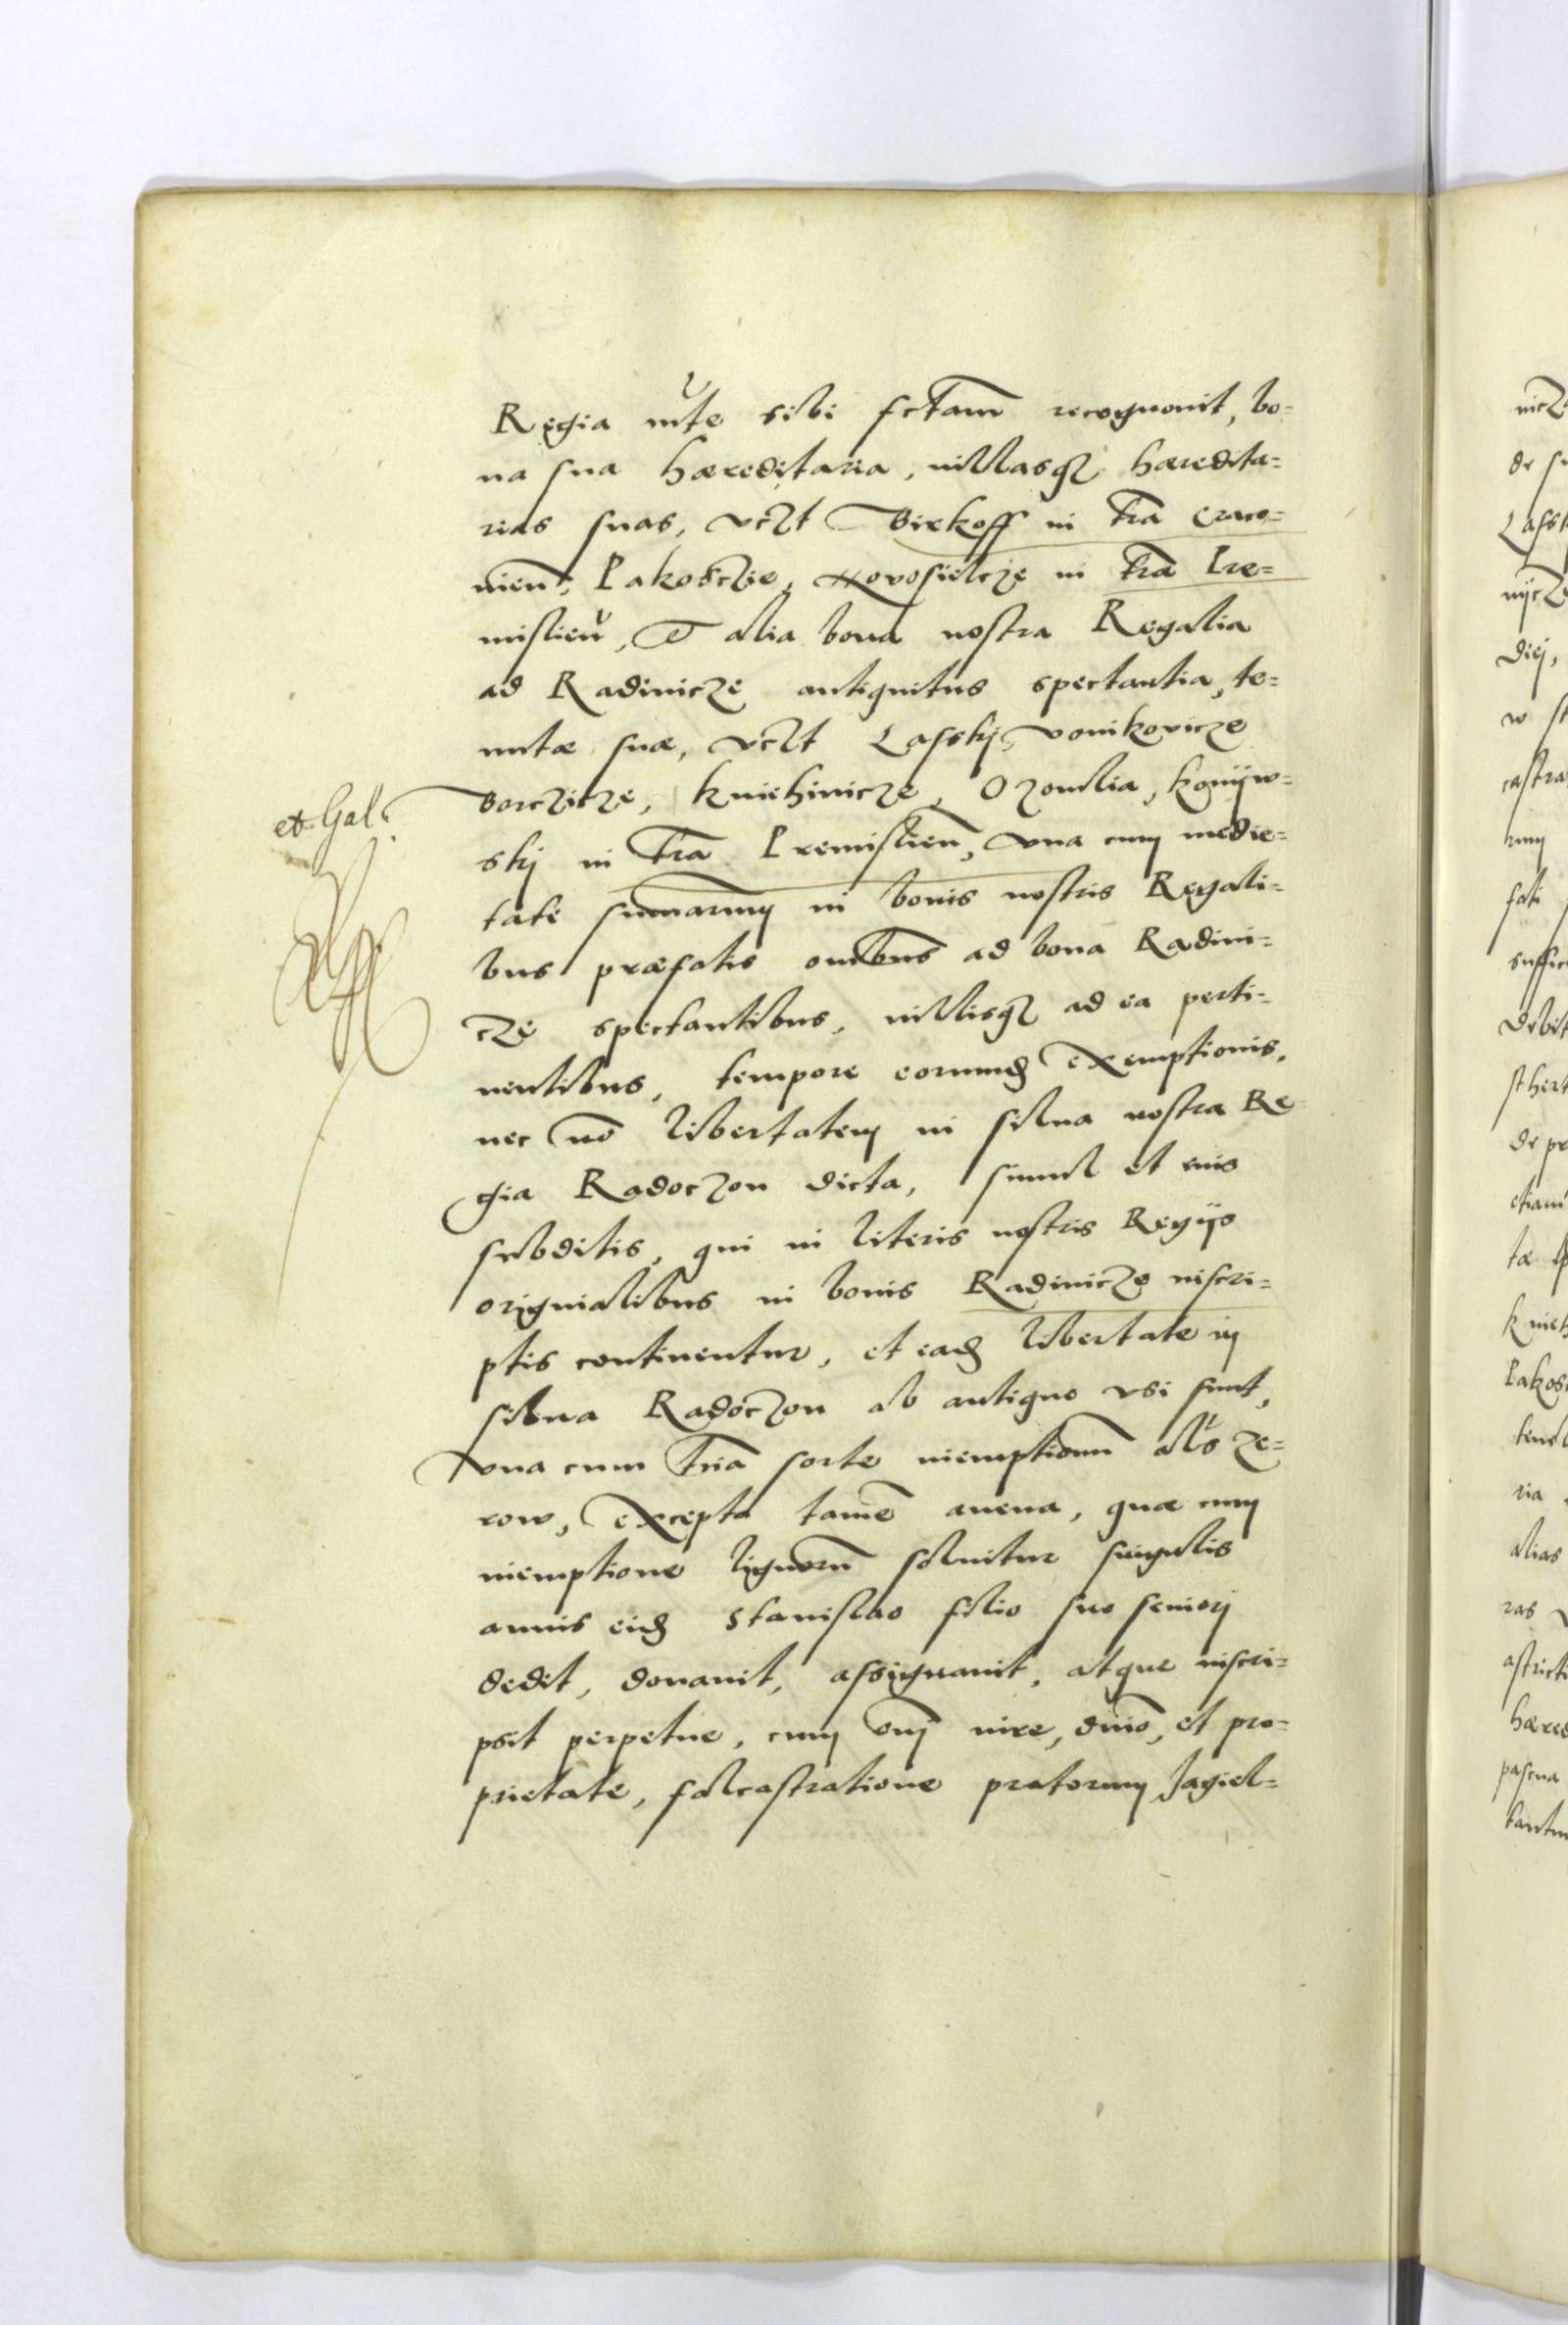 Regia mte sibi fctam recognouit, bo=
na sua hæreditaria, uillasqz hæredita=
rias suas, vczt Birkoff in tra craco=
uien, Pakoscze, Novosielcze in tra Pre=
mislien, et alia bona nostra Regalia
ad Radinicze antiquitus spectantia, te=
nutæ suæ, vczt Lasskj, vonikovicze
borczicze, kniehinicze, Ozomlia, konijw=
et Gal.
skj in tra Premislien, vna cum medie=
tate summarum in bonis nostris Regali=
bus præfatis omibus ad bona Radini=
cze spectantibus, uillisqz ad ea perti=
nentibus, tempore eorumd exemptionis,
nec no libertatem in silua nostra Re
gia Radoczon dicta, simul et eius
subditis, qui in literis nostris Regijs
originalibus in bonis Radinicze inscri=
ptis continentur, et ead libertate in
silua Radoczon ab antiquo vsi sunt,
vna cum tria sorte inemptionum als ze=
row, excepta tame auena, quæ cum
inemptione lignoru soluitur singulis
annis eid Stanislao filio suo seniorj
dedit, donauit, assignauit, atque inscri=
psit perpetue, cum omj iure, dnio, et pro=
prietate, falcastratione pratorum Jagiel=